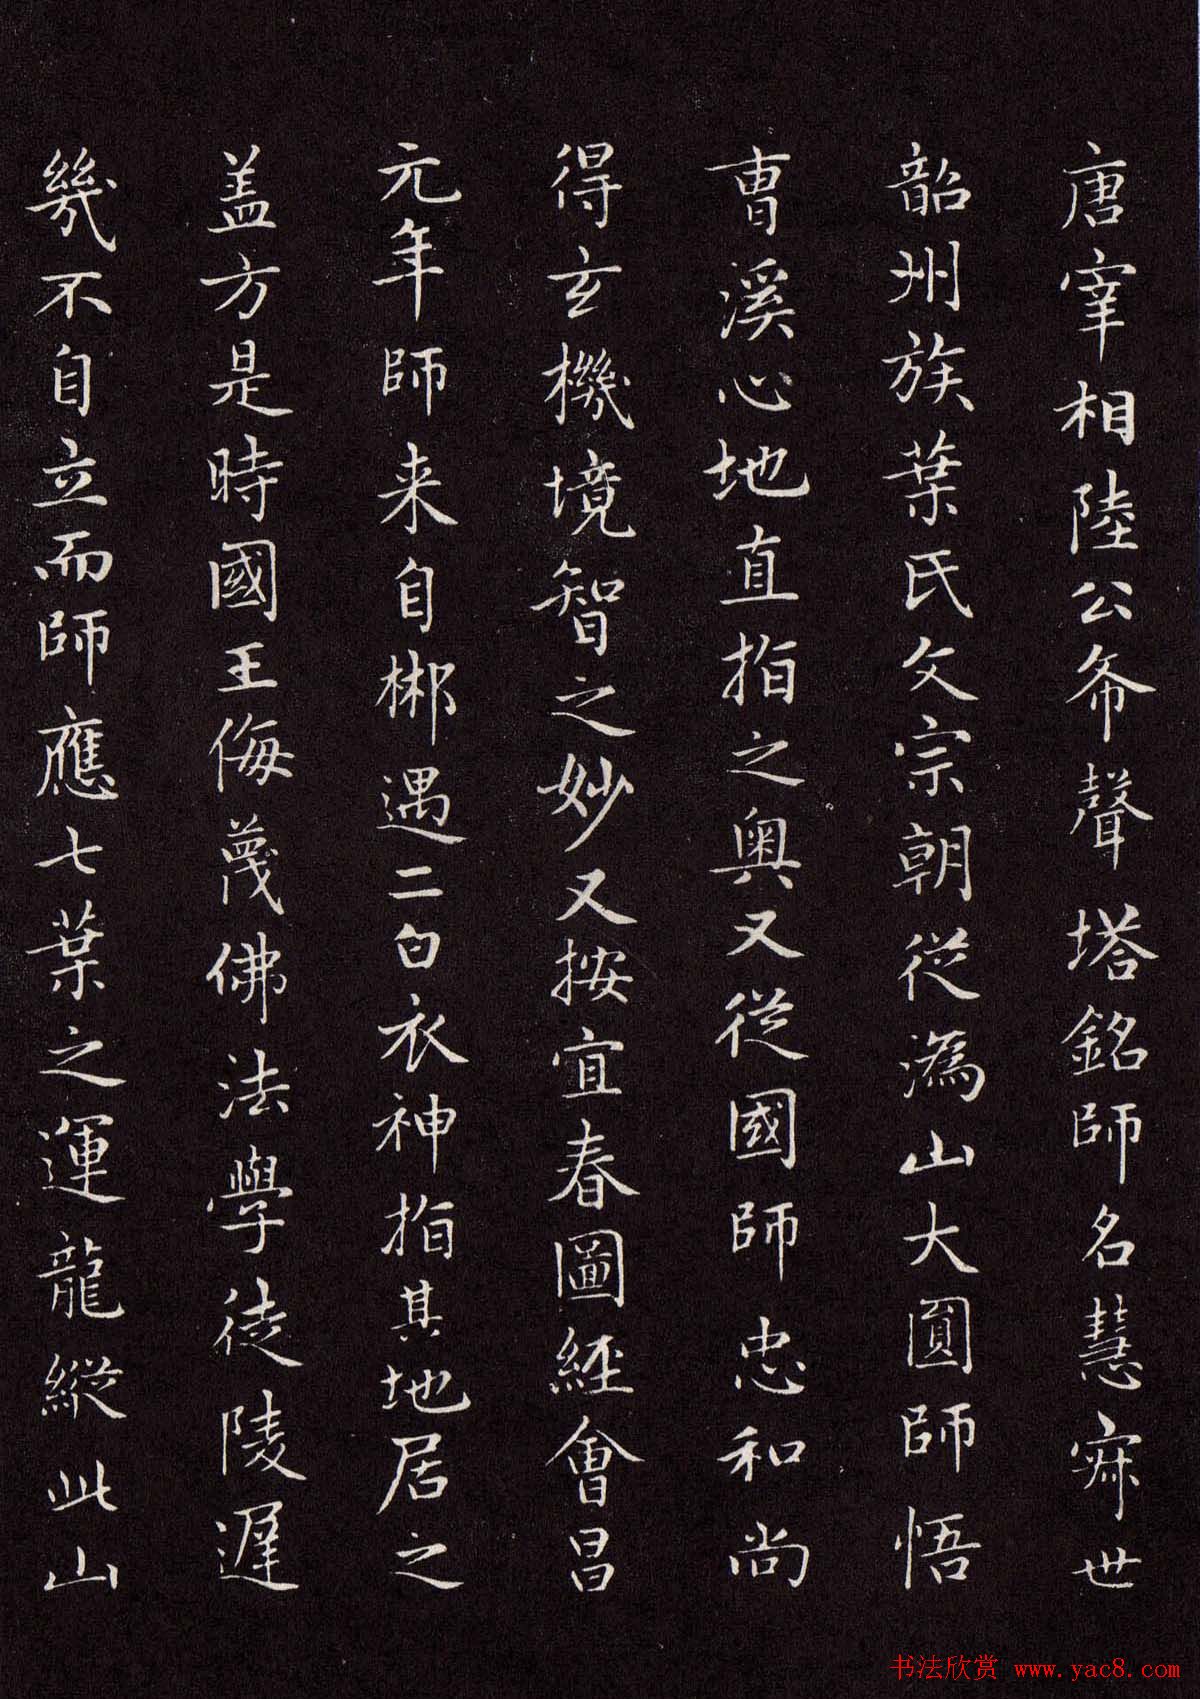 唐宰相陸公希聲塔銘師名慧寂世
韶州族葉氏文宗朝從溈山大圓師悟
曹溪心地直指之奥又從國師忠和尚
得玄機境智之妙又按宜春圖經會昌
元年師来自郴遇二白衣神指其地居之
盖方是時國王侮蔑佛法學徒陵遲
幾不自立而師應七葉之運龍縱此山
书法欣赏 www.yac8.com